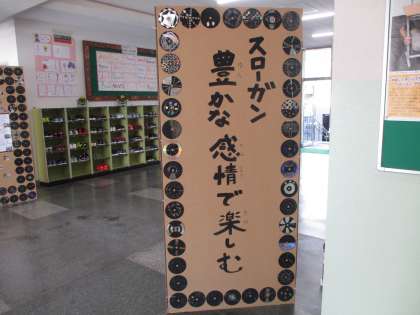 スローガン
豊かな感情で楽しむ